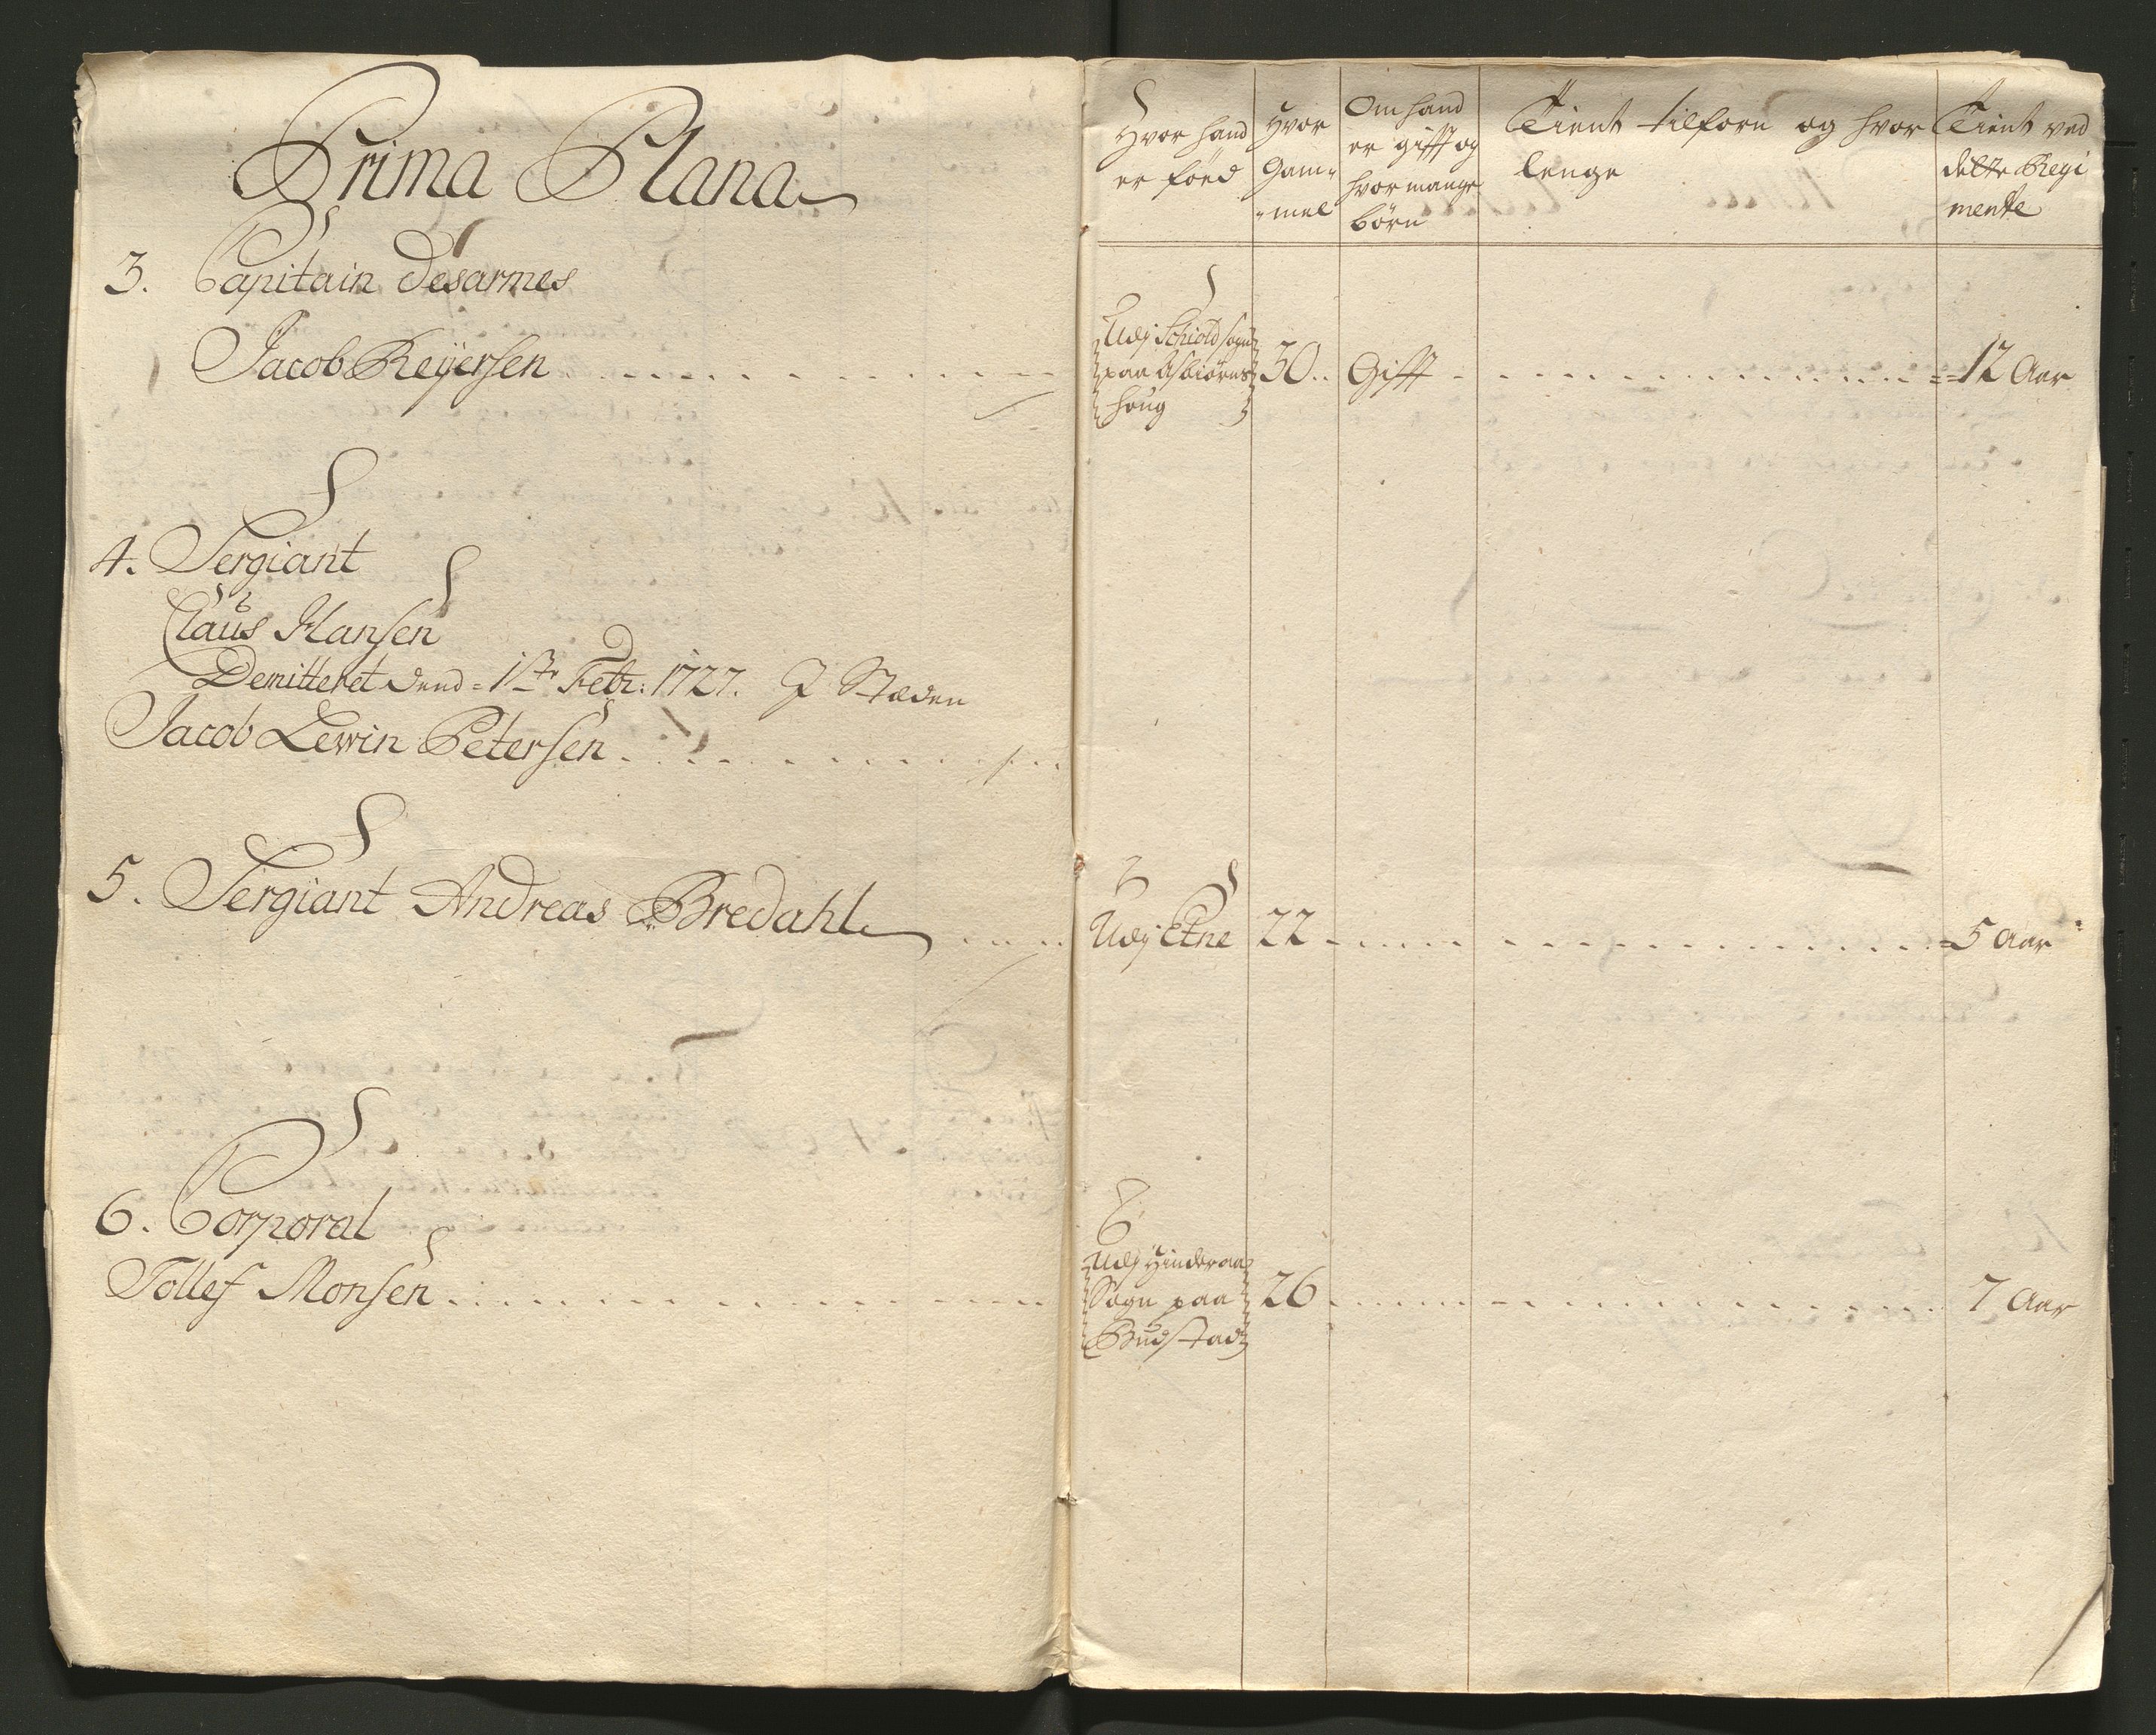 Prima Plana
3. Capitain desarmes
Jacob Reÿersen
4. Sergiant
Claus Hansen
Demitteret dend 1ste Febr: 1727. J Stæden
Jacob Lewin Petersen
5. Sergiant Andreas Bredahl
6. Corporal
Tollef Monsen
Hvor hand
er föed
Hvor
Gam„
„mel
Om hand
er gifft og
hvor mange
börn
Tient tilforn og hvor
lenge
Tient ved
dette Regi
mente
Udj Schiold sogn
paa Asbiörns
houg
30
Gifft
12 Aar
Udj Etne
22
5 Aar
Udj Hinderaa
Sogn paa
Budstad
26
7 Aar